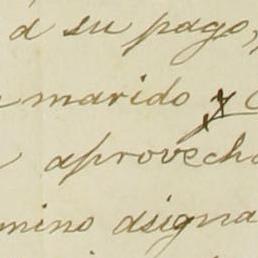 á su pago,
marido y
aprovecha
mino dsigna